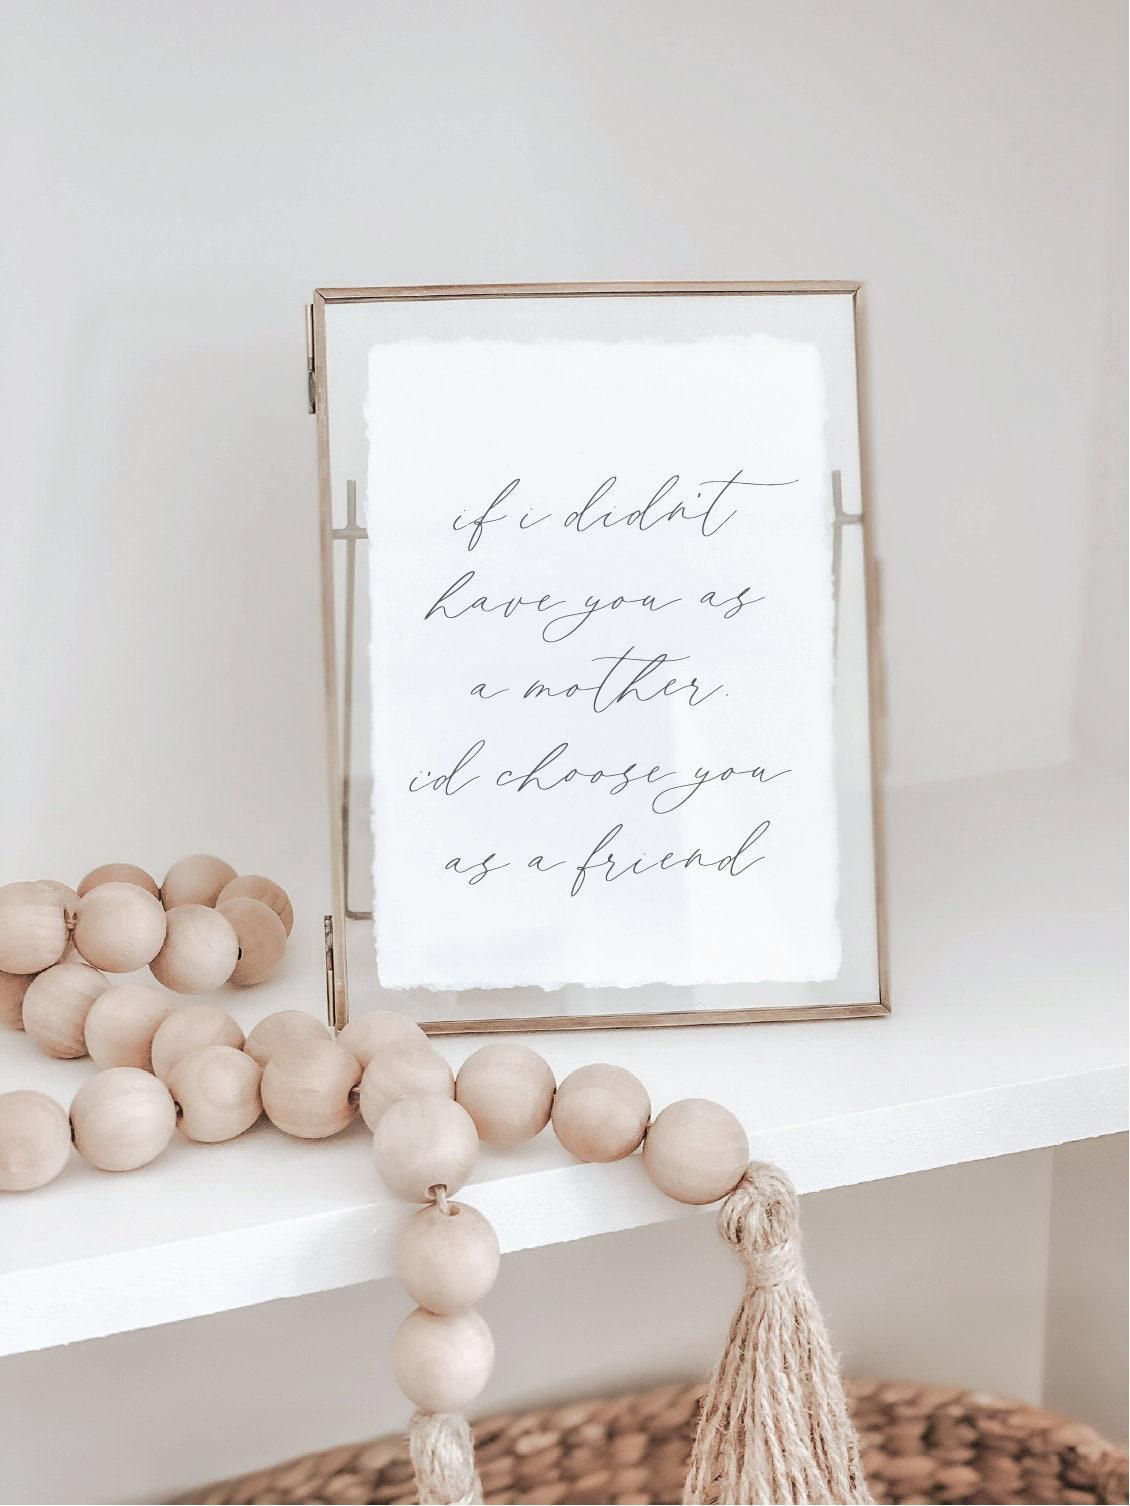 if i didn't
have you as
a mother.
i'd choose you
as a friend